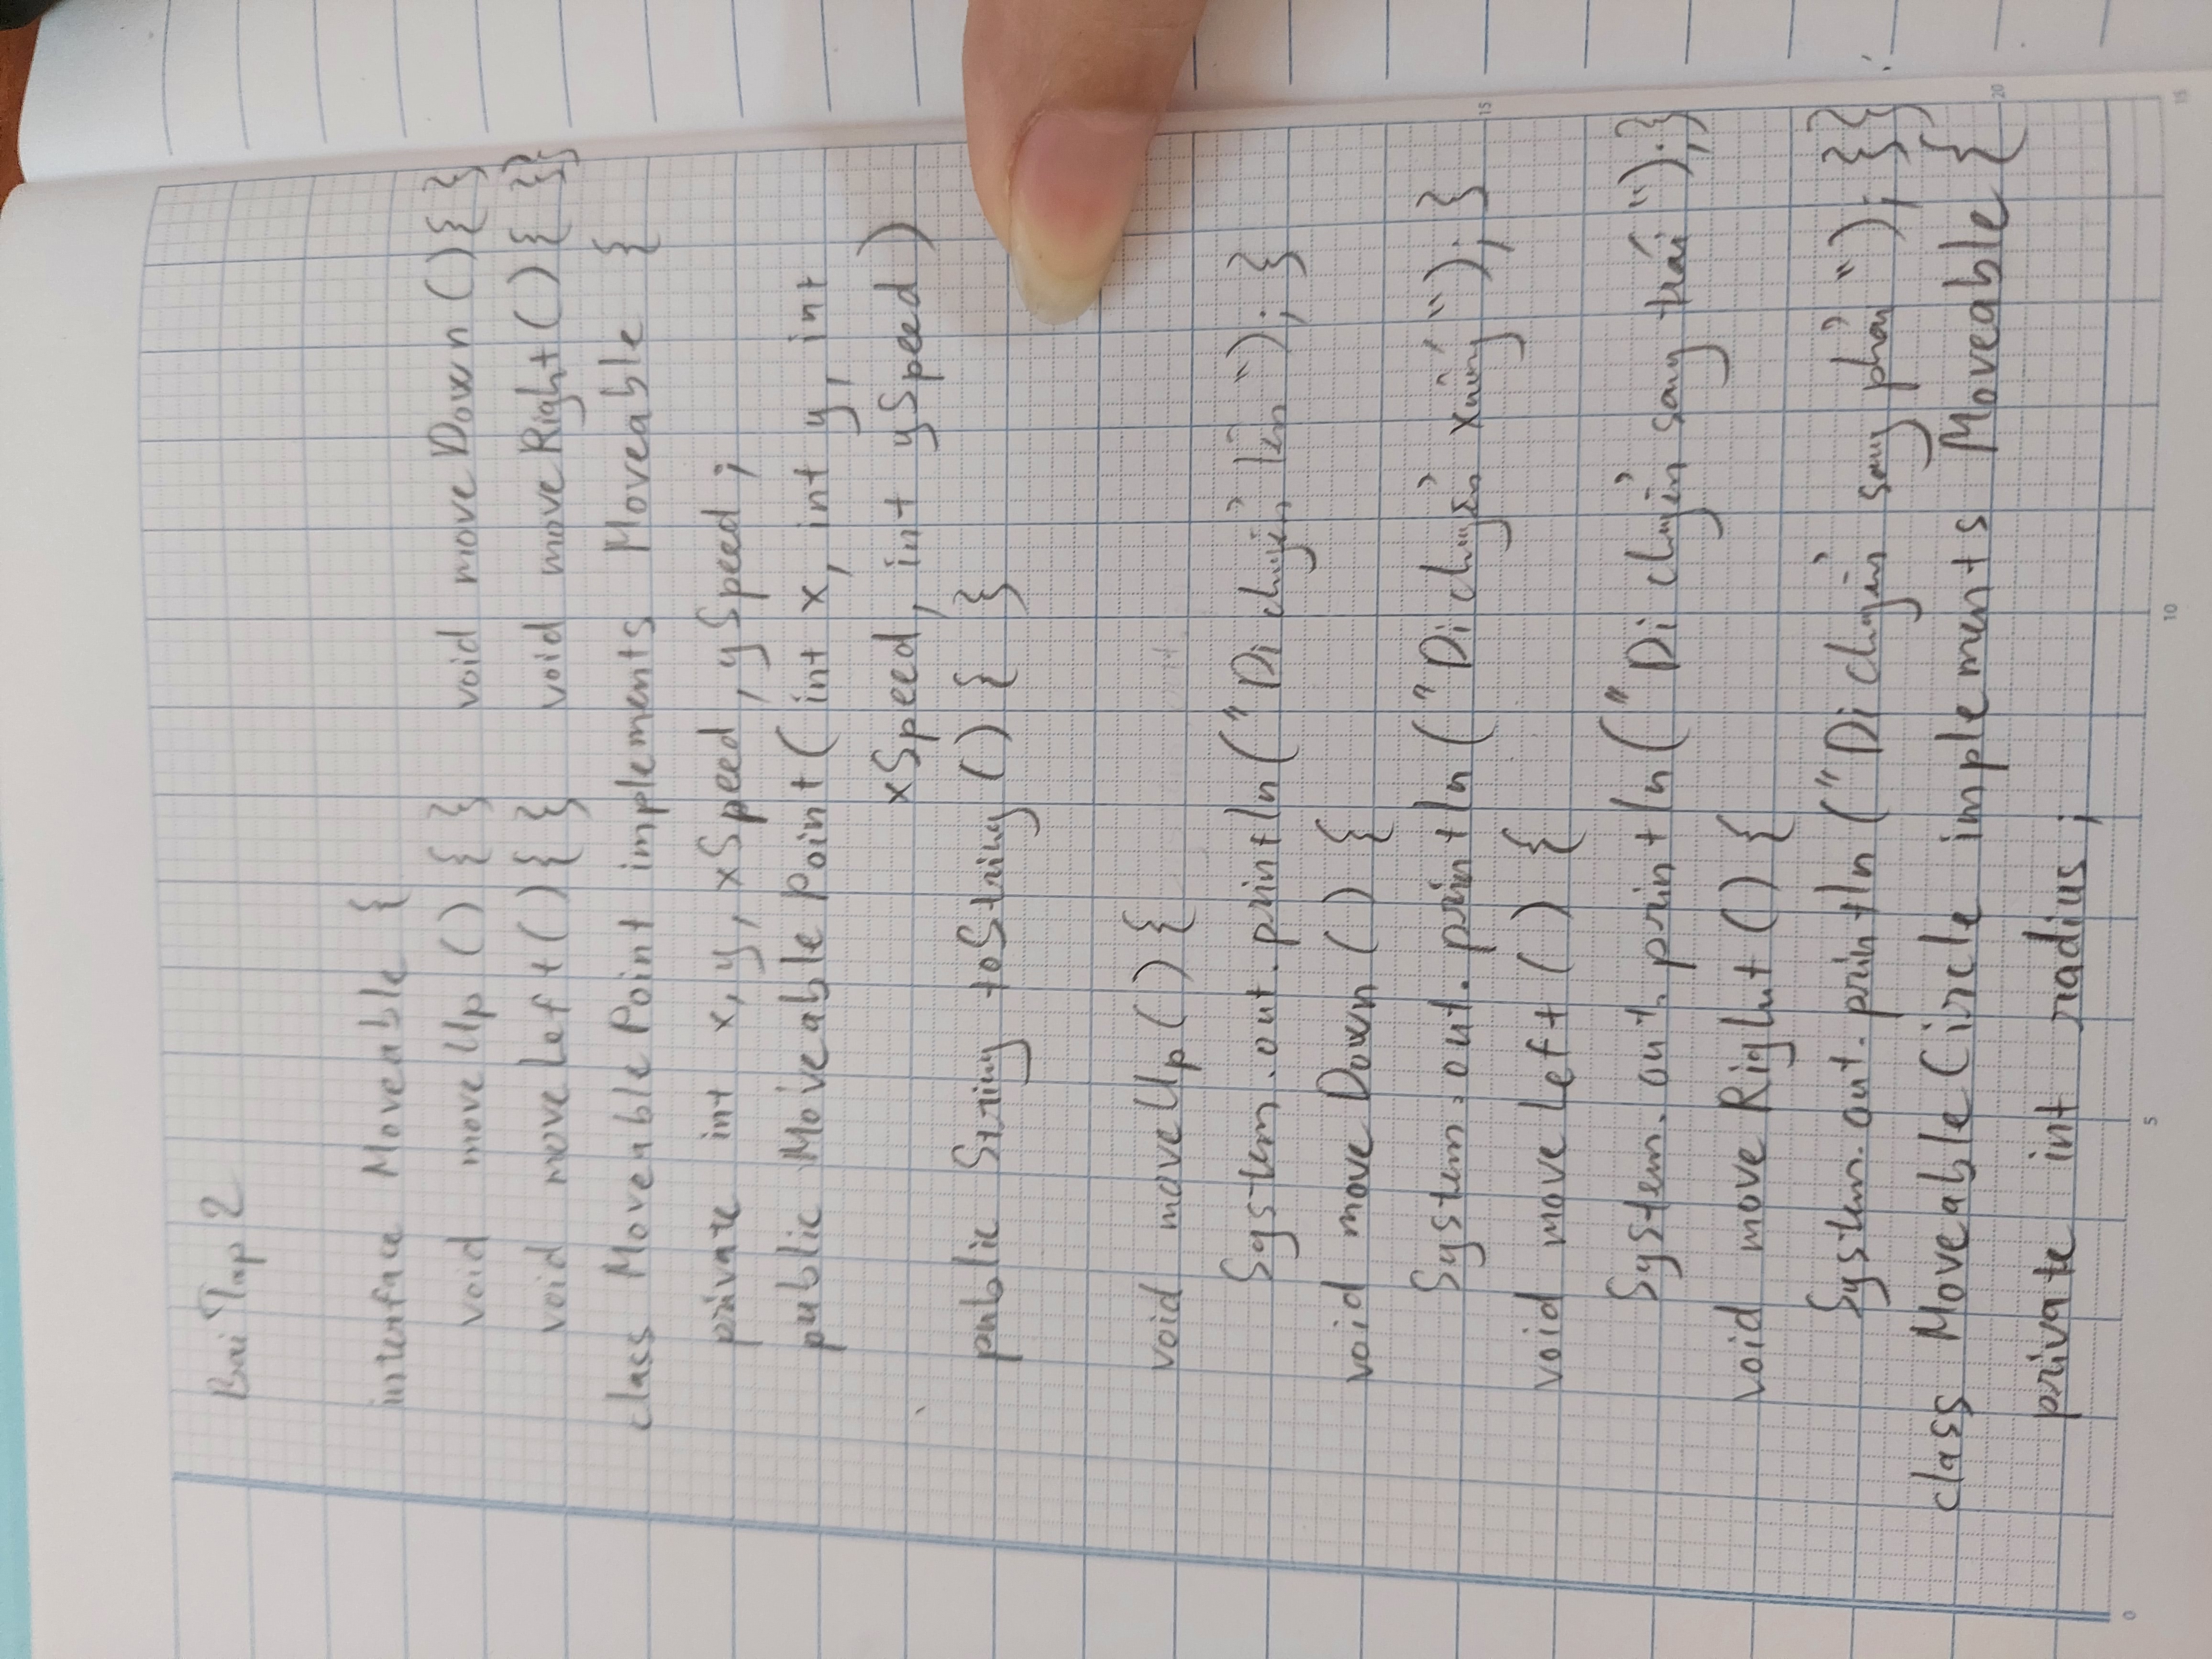 Bai Tap 2
interface Moveable {
void moveUp () { } void moveDown () { }
void moveLeft () { } void moveRight () { }}
class MoveablePoint implements Moveable {
private int x, y, xSpeed, ySpeed ;
public MoveablePoint ( int x, int y, int
xSpeed, int ySpeed )
public String toString () { }
void moveUp () {
System.out.println ("Di chuyển lên"); }
void moveDown () {
System.out.println ("Di chuyển xuống"); }
void moveLeft () {
System.out.println ("Di chuyển sang trái"); }
void moveRight () {
System.out.println ("Di chuyển sang phải"); }}
class MoveableCircle implements Moveable {
private int radius ;
0
5
10
15
15
20